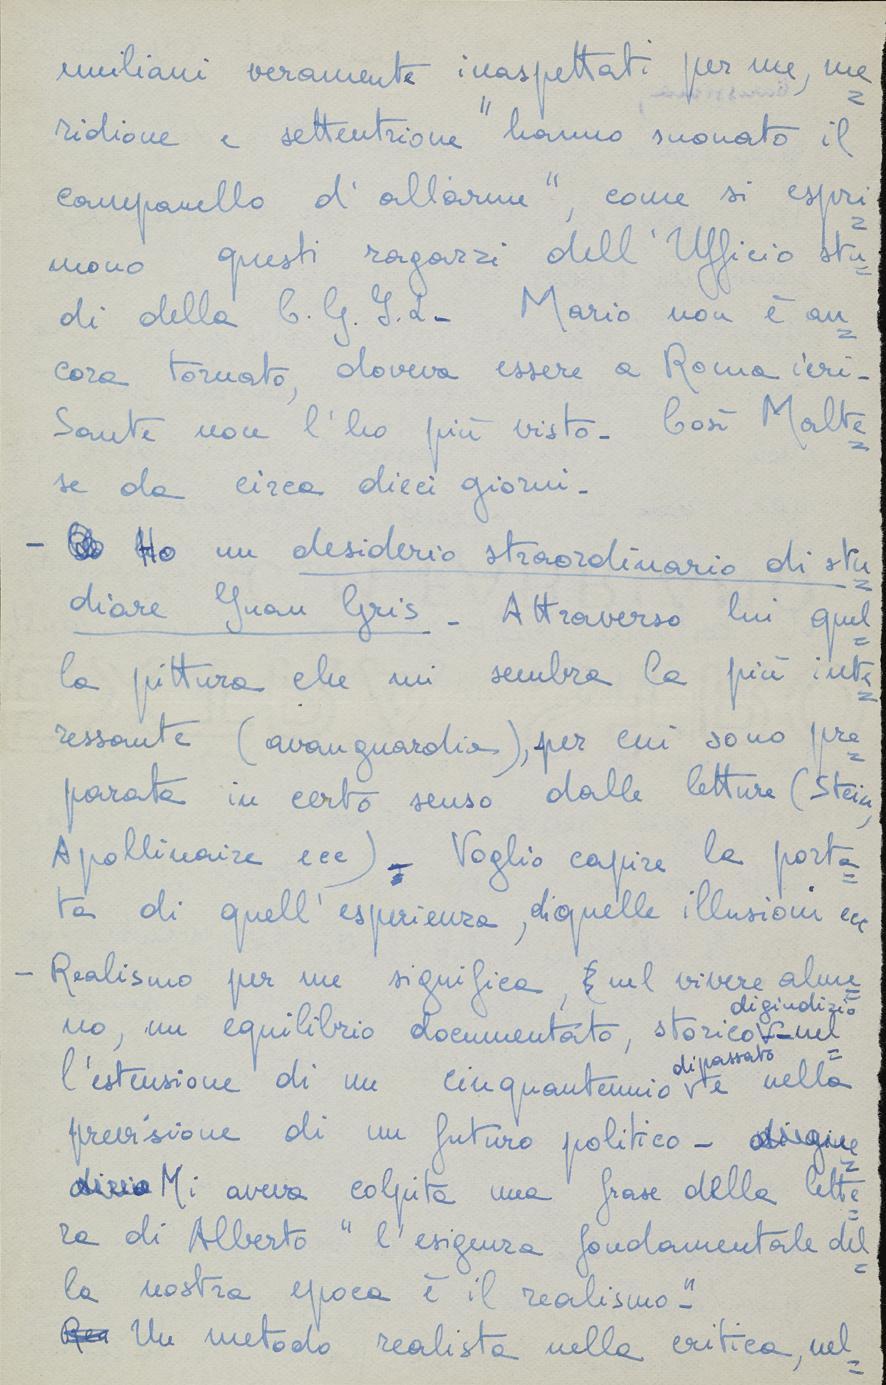 emiliani veramente inaspettati per me, me=
ridione e settentrione "hanno suonato il
campanello d'allarme", come si espri=
mono questi ragazzi dell'Ufficio stu=
di della C.G.I.L- Mario non è an=
cora tornato, doveva essere a Roma ieri-
Sante non l'ho più visto- Così Malte=
se da circa dieci giorni-
- Ho un desiderio straordinario di stu=
diare Juan Gris - Attraverso lui quel=
la pittura che mi sembra la più inte=
ressante (avanguardia), per cui sono pre=
parata in certo senso dalle letture (Stein,
Apollinaire ecc) - Voglio capire la porta=
ta di quell'esperienza, di quelle illusioni ecc
- Realismo per me significa, nel vivere alme=
no, un equilibrio documentato, storico di giudizio nel=
l'estensione di un cinquantennio di passato e nella
previsione di un futuro politico -
Mi aveva colpita una frase della lette=
ra di Alberto "l'esigenza fondamentale del=
la nostra epoca è il realismo"-
Un metodo realista nella critica, nel=